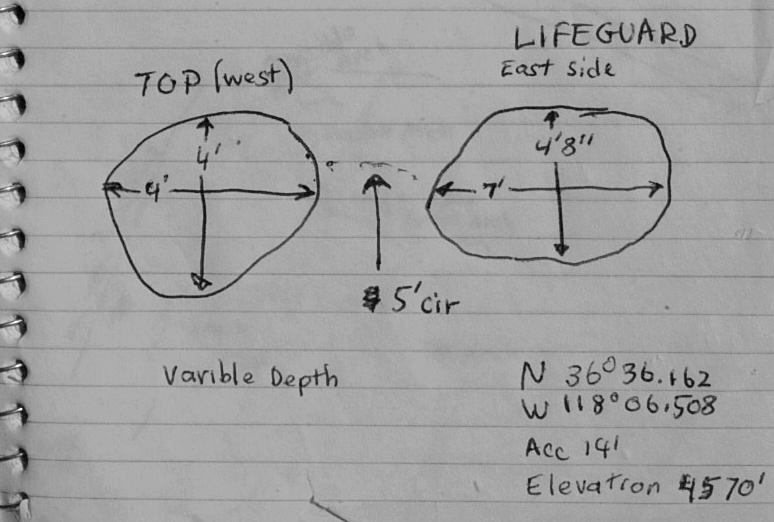 LIFEGUARD
East side
TOP (west)
4'
4'8"
9'
7'
5' cir
Varible Depth
N 36° 36.162
W 118° 06.508
Acc 14'
Elevation 4570'